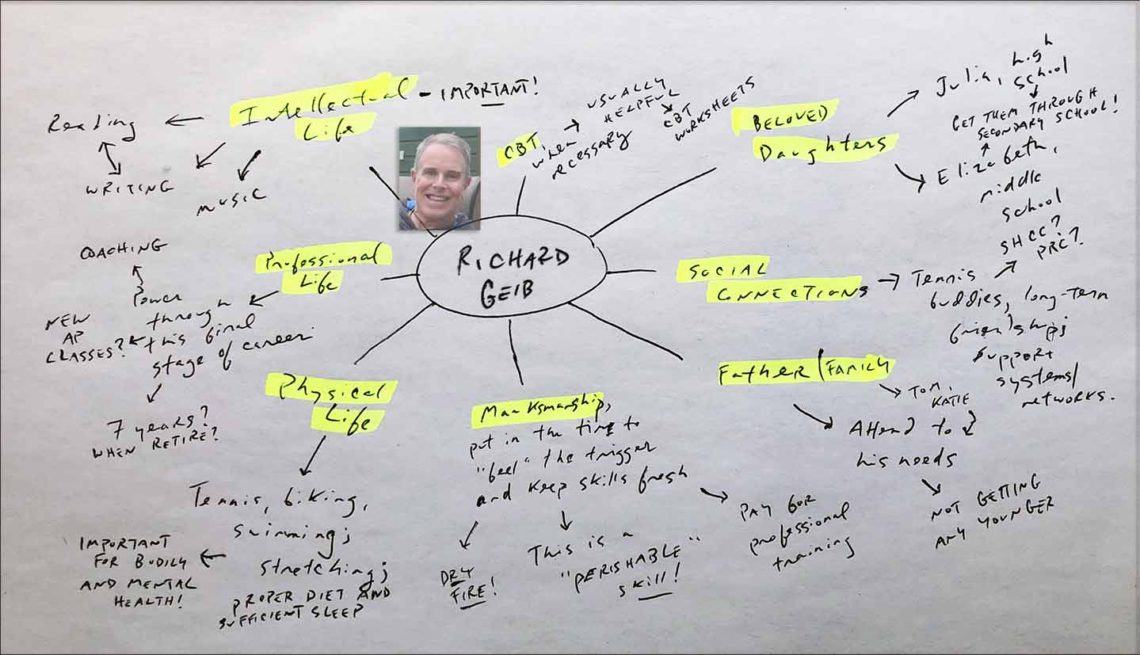 Intellectual
Life
- IMPORTANT!
Reading
WRITING
MUSIC
CBT,
when
necessary
USUALLY
HELPFUL
CBT
WORKSHEETS
BELOVED
Daughters
Julia, high
school
GET THEM THROUGH
SECONDARY SCHOOL!
Elizabeth,
middle
school
SHCC?
PRC?
RICHARD
GEIB
Professional
Life
COACHING
Power
through
this final
stage of career
NEW
AP
CLASSES?
7 years?
WHEN RETIRE?
SOCIAL
CONNECTIONS
Tennis
buddies, long-term
friendships;
support
systems/
networks.
Father/FAMILY
TOM,
KATIE
Attend to
his needs
NOT GETTING
ANY YOUNGER
Physical
Life
Tennis, biking,
swimming;
stretching;
PROPER DIET AND
SUFFICIENT SLEEP
IMPORTANT
FOR BODILY
AND MENTAL
HEALTH!
Marksmanship,
put in the time to
"feel" the trigger
and keep skills fresh
DRY
FIRE!
This is a
"PERISHABLE"
skill!
PAY FOR
professional
training